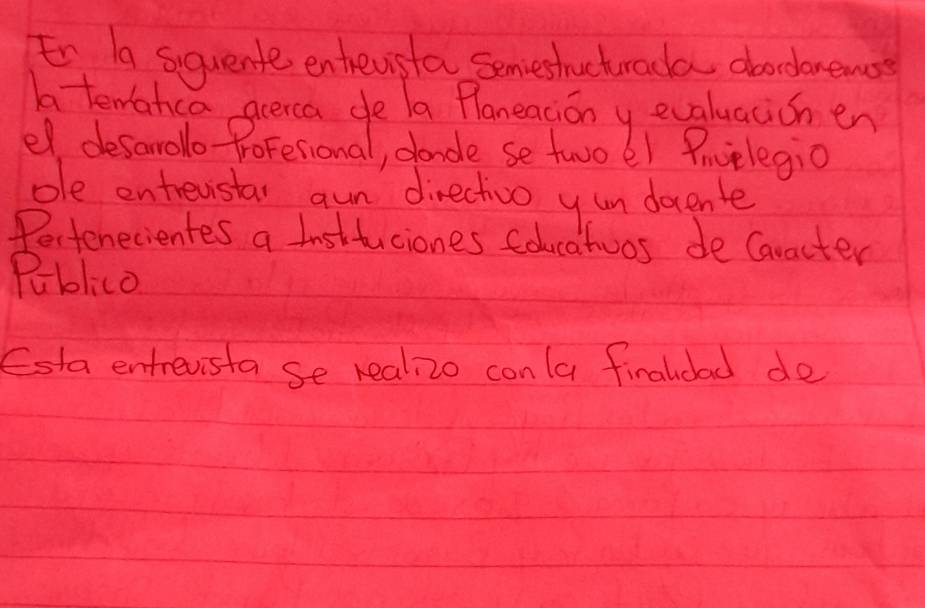 En la siguiente entrevista semiestructurada abordaremos
la Temática acerca de la Planeación y evaluación en
el desarrollo Profesional, donde se tuvo el Privilegio
de entrevistar aun directivo y un docente
Pertenecientes a Instituciones Educativos de Caracter
Público
Esta entrevista se realizo con la finalidad de